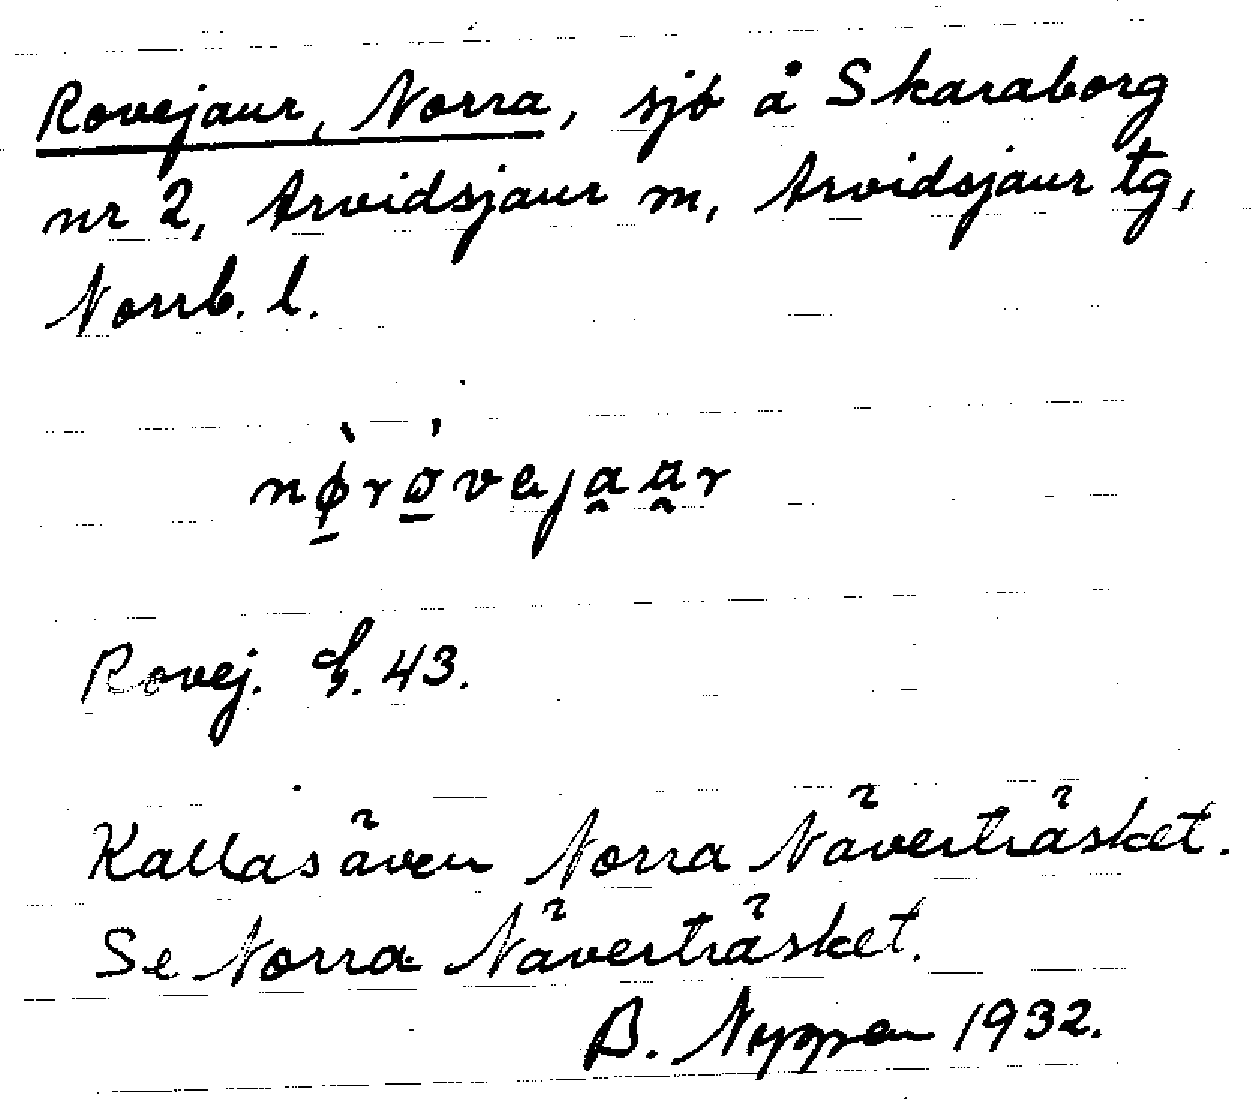 Rovejaur, Norra, sjö å Skaraborg
nr 2, Arvidsjaur m, Arvidsjaur tg,
Norrb. l.
Rovej. 43.
Kallas även Norra Näverträsket.
Se Norra Näverträsket.
B. 1932.